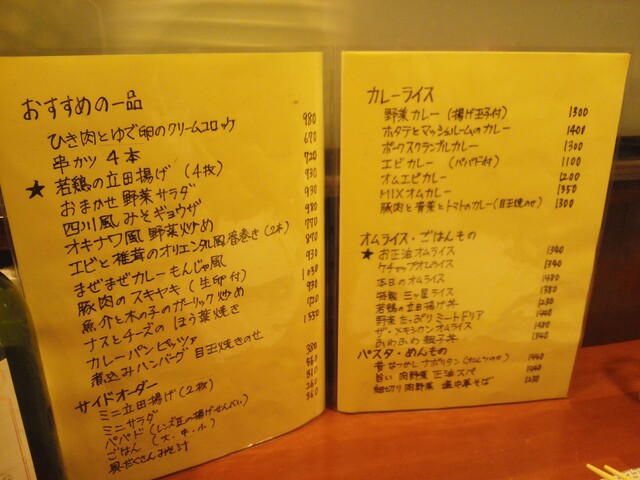 おすすめの一品
ひき肉とゆで卵のクリームコロッケ 980
串カツ 4本 670
★ 若鶏の立田揚げ (4枚) 720
おまかせ野菜サラダ 930
四川風みそギョウザ 930
オキナワ風野菜炒め 980
エビと椎茸のオリエンタル風春巻き(2本) 770
まぜまぜカレーもんじゃ風 870
豚肉のスキヤキ (生卵付) 930
魚介と木の子のガーリック炒め 1030
ナスとチーズのほう葉焼き 930
カレーパンピッツァ 720
煮込みハンバーグ目玉焼きのせ 1550
サイドオーダー
ミニ立田揚げ(2枚) 380
ミニサラダ 360
パパド (レンズ豆の揚げせんべい) 210
ごはん (大・中・小) 260
具だくさんみそ汁 360
カレーライス
野菜カレー (揚げ玉子付) 1300
ホタテとマッシュルームのカレー 1400
ポークスクランブルカレー 1300
エビカレー (パパド付) 1100
オムエビカレー 1200
MIXオムカレー 1350
豚肉と青菜とトマトのカレー(目玉焼のせ) 1300
オムライス・ごはんもの
★ お正油オムライス 1340
ケチャップオムライス 1340
本日のオムライス 1480
特製 三ツ星ライス 1380
若鶏の立田揚げ丼 1230
野菜たっぷりミートドリア 1440
ザ・メキシカンオムライス 1480
ふわふわ 親子丼 1340
パスタ・めんもの
昔なつかしナポリタン 1440
旨い 肉野菜 正油スパ 1440
細切り肉野菜 塩中華そば 1230